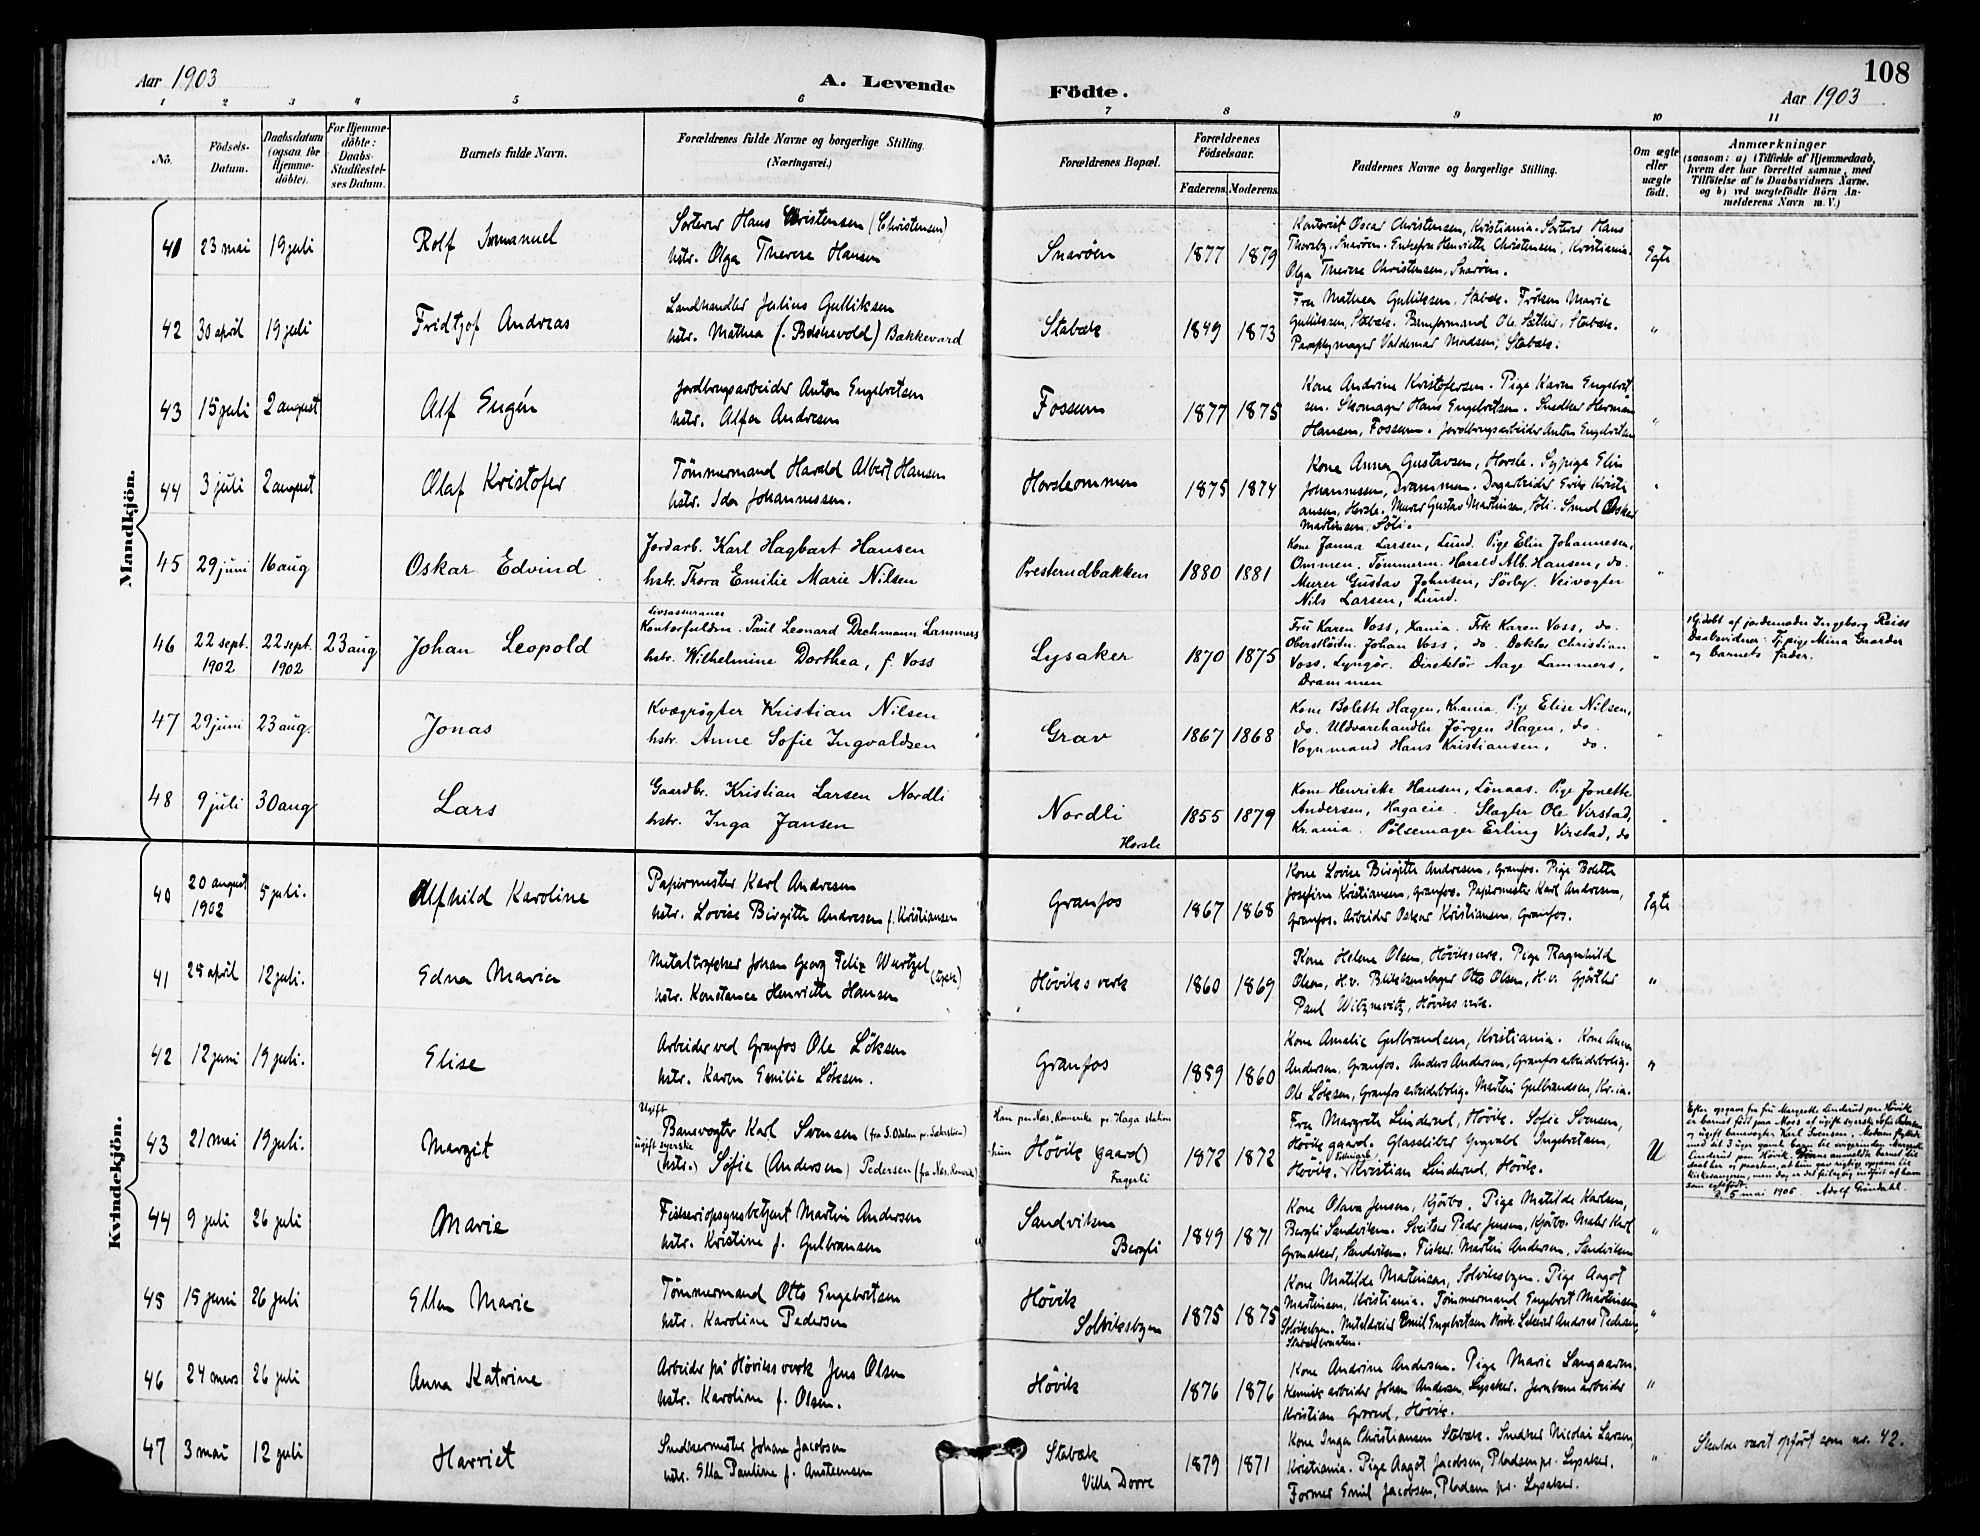 Aar 1903
A. Levende Födte.
108
Aar 1903
1 2 3 4 5 6 7 8 9 10 11
No.
Födsels-Datum.
Daabsdatum (ogsaa for Hjemme-döbte).
For Hjemme-döbte: Daabs-Stadfæstel-ses Datum.
Barnets fulde Navn.
Forældrenes fulde Navne og borgerlige Stilling. (Næringsvei.)
Forældrenes Bopæl.
Forældrenes Födselsaar.
Faderens. Moderens.
Faddernes Navne og borgerlige Stilling.
Om ægte eller uægte födt.
Anmærkninger
(saasom: a) i Tilfælde af Hjemmedaab,
hvem der har forrettet samme, med
Tilföielse af to Daabsvidners Navne.
og b) ved uægtefödte Börn An-
melderens Navn m. V.)
Mandkjön.
41 23 mai 19 juli Rolf Immanuel
Sorterer Hans Christensen (Christensen)
hstr. Olga Therese Hansen
Snarøen 1877 1879
Kontorist Oscar Christensen, Kristiania. Sorterer Hans
Thoresby, Snarøen. Enkefru Henriette Christensen, Kristiania.
Olga Therese Christensen, Snarøen.
Egte
42 30 april 19 juli Fridtjof Andreas
Landhandler Julius Gulliksen
hstr. Mathea (f. Bakkevold) Bakkevard
Stabæk 1849 1873
Fru Mathea Gulliksen, Stabæk. Frøken Marie
Gulliksen, Stabæk. Bemformand Ole Sæther, Stabæk.
Paraplymager Valdemar Madsen, Stabæk.
"
43 15 juli 2 august Alf Eugén
Jordbrugsarbeider Anton Engebretsen
hstr. Alfa Andresen
Fossum 1877 1875
Kone Andrine Kristofersen. Pige Karen Engebret
sen. Skomager Hans Engebretsen. Snedker Herman
Hansen, Fossum. Jordbrugsarbeider Anton Engebretsen
"
44 3 juli 2 august Olaf Kristofer
Tömmermand Harald Albert Hansen
hstr. Ida Johannessen.
Horsleommen 1875 1874
Kone Anna Gustavsen, Horsle. Sypige Elin
Johannessen, Drammen. Dagarbeider Erik Kristi
ansen, Horsle. Murer Gustav Martinsen, Söli. Smed Oskar
Martinsen, Söli.
"
45 29 juni 16 aug Oskar Edvind
Jordarb. Karl Hagbart Hansen
hstr. Thora Emilie Marie Nilsen
Presterudbakken 1880 1881
Kone Janna Larsen, Lund. Pige Elin Johannesen,
Ommen. Tömmerm. Harald Alb. Hansen, do.
Murer Gustav Johnsen, Sörby. Veivogter
Nils Larsen, Lund.
"
46 22 sept. 1902 22 sept. 1902 23 aug Johan Leopold
Livsassurance
Kontorfuldm. Paul Leonard Dechmann Lammers
hstr. Wilhelmine Dorthea, f. Voss
Lysaker 1870 1875
Fru Karen Voss, Xania. Frk Karen Voss, do.
Oberstlöitn. Johan Voss, do. Doktor Christian
Voss, Lyngör. Direktör Aage Lammers,
Drammen
"
Hjdöbt af jordemoder Ingeborg Reiss
Daabsvidner: Tj.pige Mina Gaarder
og barnets fader.
47 29 juni 23 aug. Jonas
Kvægrögter Kristian Nilsen
hstr. Anne Sofie Ingvaldsen
Grav 1867 1868
Kone Bolette Hagen, Kr.ania. Pige Elise Nilsen,
do. Uldvarehandler Jörgen Hagen, do.
Vognmand Hans Kristiansen, do.
"
48 9 juli 30 aug Lars
Gaardbr. Kristian Larsen Nordli
hstr. Inga Jansen
Nordli
Horsle
1855 1879
Kone Henrikke Hansen, Lönaas. Pige Jonette
Andersen, Hagaeie. Slagter Ole Virstad,
Kr.ania. Pölsemager Erling Virstad, do
"
Kvindekjön.
40 20 august 1902 5 juli. Alfhild Karoline
Papirmester Karl Andresen
hstr. Lovise Birgitte Andresen f. Kristiansen
Granfos 1867 1868
Kone Lovise Birgitte Andresen, Granfos. Pige Bolette
Josefine Kristiansen, Granfos. Papirmester Karl Andresen,
Granfos. Arbeider Oskar Kristiansen, Granfos.
Egte
41 24 april 12 juli. Edna Maria
Metaltrykker Johan Georg Felix Wurtzel (tysk)
hstr. Konstance Henriette Hansen
Høviks verk 1860 1869
Kone Helene Olsen, Høviksverk. Pige Ragnhild
Olsen, H.v. Blikkenslager Otto Olsen, H.v. Gjørtler
Paul Høviks verk.
"
42 12 juni 19 juli. Elise
Arbeider ved Granfos Ole Löksen
hstr. Karen Emilie Löksen.
Granfos 1859 1860
Kone Amalie Gulbrandsen, Kristiania. Kone Anna
Andersen, Granfos. Anders Andersen, Granfos arbeiderbolig.
Ole Löksen, Granfos arbeiderbolig. Martin Gulbrandsen, Kr.ia.
"
43 21 mai 19 juli. Margit
Ugift
Banevogter Karl Svensen (fra S. Odalen pr. Sæterstøen)
ugift syerske
(hstr.) Sofie (Andersen) Pedersen (fra Næs, Romerike)
Han pr. Næs, Romerike pr. Haga station
hun Høvik (gaard)
Fagerli
1872 1872
Fru Margrete Linderud, Høvik. Sofie Svensen,
Høvik gaard. Glassliber Yngvald Ingebretsen,
Høvik. Kristian Linderud, Høvik.
U
Efter opgave fra fru Margrethe Linderud pr. Høvik
er barnet født paa Moss af ugift syerske Sofie Pedersen
og ugift banevogter Karl Svensen. Moderen flyttede
med til 3 uger gamle barn til svigerinden Margrethe
Linderud paa Høvik. Denne anmeldte barnet til
daab her og paastaar, at hun gav rigtig opgave til
kirkesangeren, men dog er det feilagtig indført af ham
som egtefødt.
5 mai 1905 Adolf Grøndahl.
44 9 juli 26 juli Marie
Fiskeriopsynsbetjent Martin Andersen
hstr. Kristine f. Gulbransen
Sandviken
Bergli
1849 1871
Kone Olava Jensen, Kjørbo. Pige Matilde Karlsen,
Bergli Sandviken. Sveitser Peder Jensen, Kjørbo. Maler Karl
Grønaker, Sandviken. Fisker Martin Andersen, Sandviken
"
45 15 juni 26 juli Ellen Marie
Tömmermand Otto Engebretsen
hstr. Karoline Pedersen
Høvik
Solviksbyen
1875 1875
Kone Matilde Martinsen, Solviksbyen. Pige Aagot
Martinsen, Kristiania. Tömmermand Engebret Martinsen
Solviksbyen. Metaldreier Emil Engebretsen Høvik. Andreas Pedersen,
"
46 24 mars 26 juli Anna Katrine
Arbeider på Høviks verk Jens Olsen
hstr. Karoline f. Olsen.
Høvik 1876 1876
Kone Andrine Andersen. Pige Marie Langaaren.
Kemisk arbeider Johan Andersen, Lysaker. Jernbanearbeider
Kristian Grorud, Høvik.
"
47 3 mai 12 juli Harriet
Snedkermester Johan Jacobsen
hstr. Ella Pauline f. Anstensen
Stabæk
Villa Dovre
1879 1871
Kone Inga Christiansen Stabæk. Snedker Nicolai Larsen,
Kristiania. Pige Aagot Jacobsen, Pladsen pr. Lysaker.
Former Emil Jacobsen, Pladsen pr. Lysaker.
"
Skulde vært opført som nr. 42.